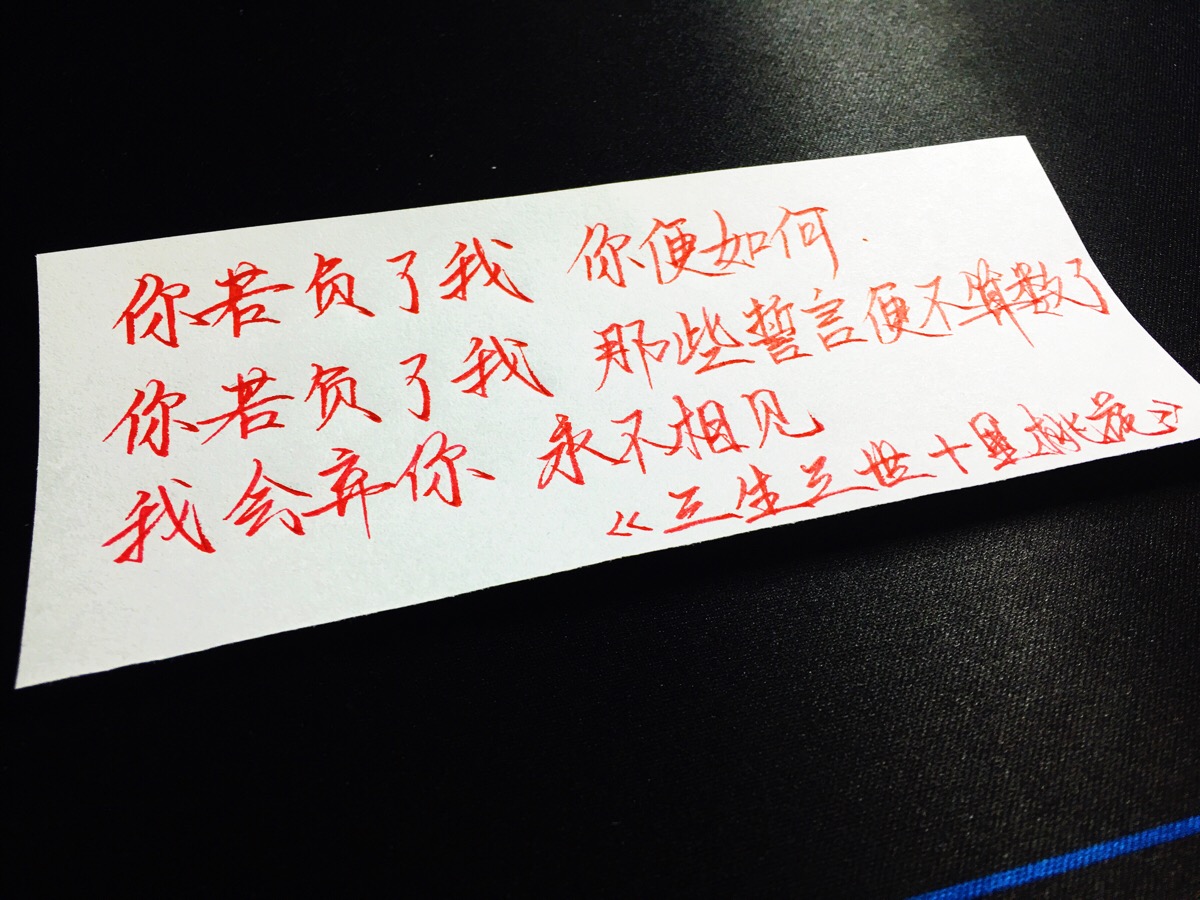 你若负了我 你便如何.
你若负了我 那些誓言便不算数了
我会弃你 永不相见
《三生三世十里桃花》